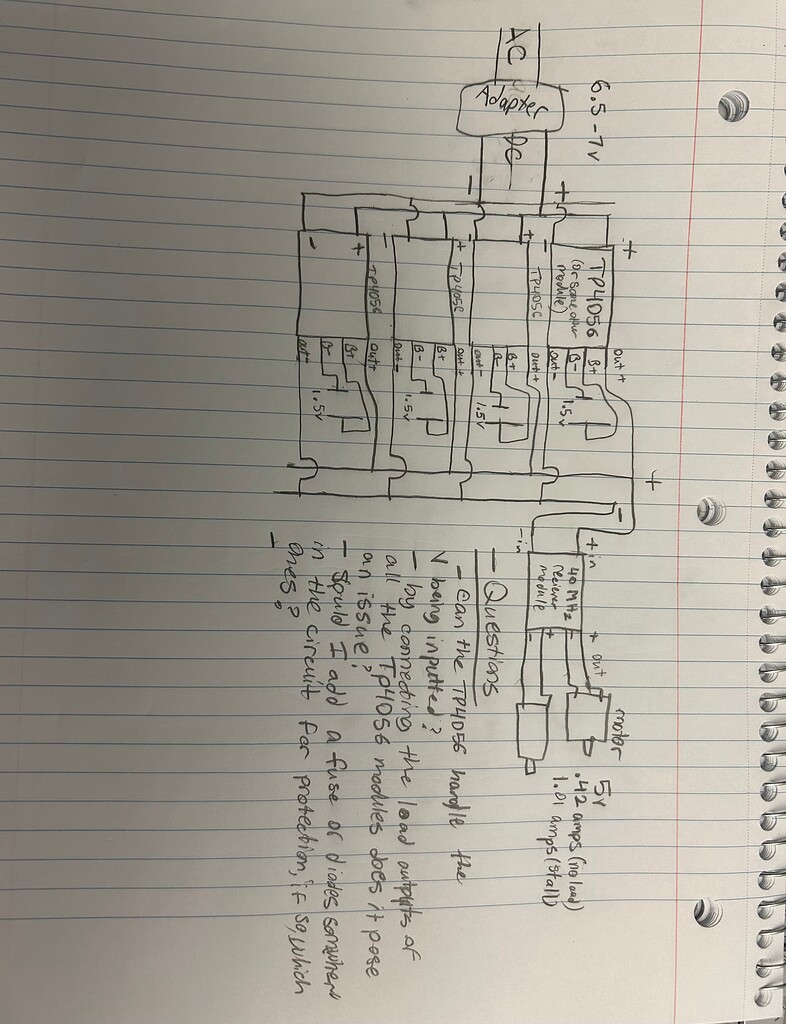 AC
Adapter
DC
6.5-7v
-
+
+
TP4056
(or some other
module)
-
+
TP4056
-
+
TP4056
-
+
TP4056
-
out+
B+
B-
out-
1.5v
out+
B+
B-
out-
1.5v
out+
B+
B-
out-
1.5v
out+
B+
B-
out-
1.5v
+
-
+ in
- in
40 MHz
reciever
module
+ out
-
+
-
motor
5v
.42 amps (no load)
1.01 amps (stall)
- Questions
- can the TP4056 handle the
V being inputted?
- by connecting the load outputs of
all the TP4056 modules does it pose
an issue?
- Should I add a fuse or diodes somewhere
in the circuit for protection, if so, which
ones?
-